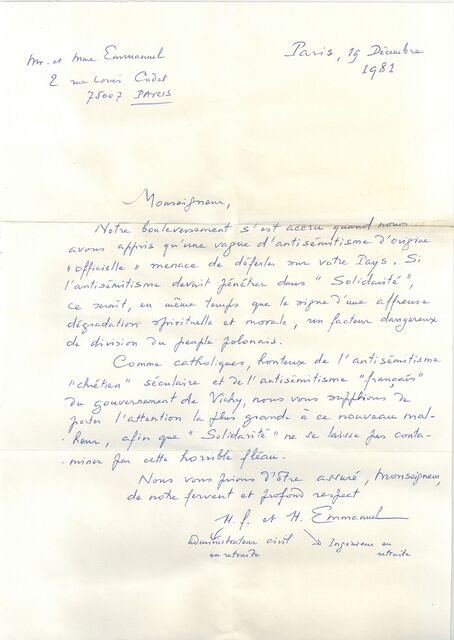 Mr. et Mme Emmanuel
2 rue Louis Codet
75007 PARIS
Paris, 19 Décembre
1981
Monseigneur,
Notre bouleversement s'est accru quand nous
avons appris qu'une vague d'antisémitisme d'origine
"officielle" menace de déferler sur votre Pays. Si
l'antisémitisme devait pénétrer dans "Solidarité",
ce serait, en même temps que le signe d'une affreuse
dégradation spirituelle et morale, un facteur dangereux
de division du peuple polonais.
Comme catholiques, honteux de l'antisémitisme
"chrétien" séculaire et de l'antisémitisme "français"
du gouvernement de Vichy, nous vous supplions de
porter l'attention la plus grande à ce nouveau mal-
-heur, afin que "Solidarité" ne se laisse pas conta-
-miner par cette horrible fléau.
Nous vous prions d'être assuré, Monseigneur,
de notre fervent et profond respect
H. J. et H. Emmanuel
administrateur civil
en retraite
Ingénieur en
retraite